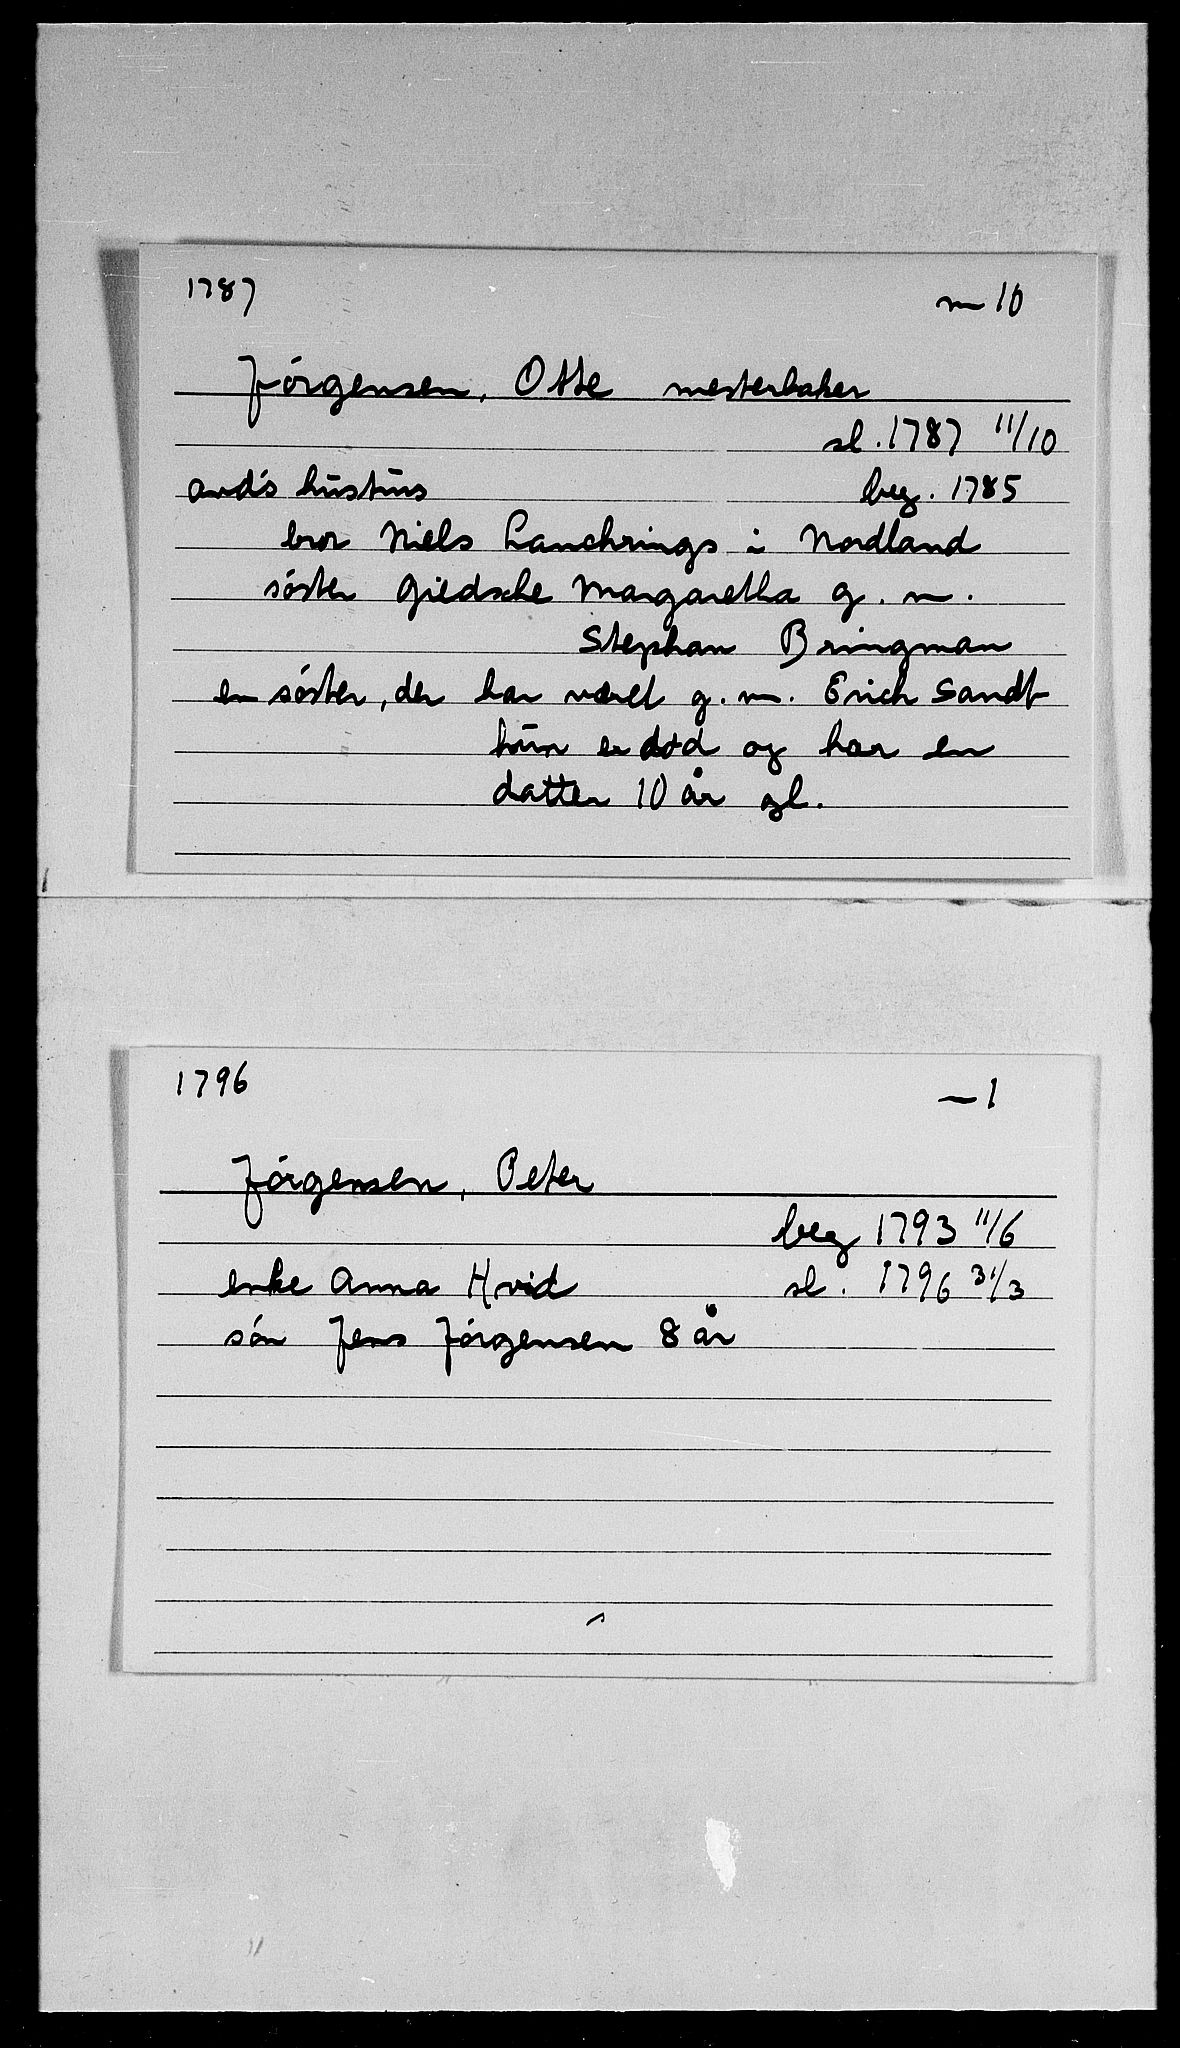 1787 m 10
Jörgensen, Otte mesterbaker
sl. 1787 11/10
avd's hustrus beg. 1785
bror Niels Lanchrings i Nordland
söster Giedsche Margaretha g. m.
Stephan Bringman
en söster, der har været g. m. Erich Sandt
hun er död og har en
datter 10 år gl.
1796 — 1
Jörgensen, Peter
beg 1793 11/6
enke Anna Hvid sl. 1796 31/3
sön Jens Jörgensen 8 år